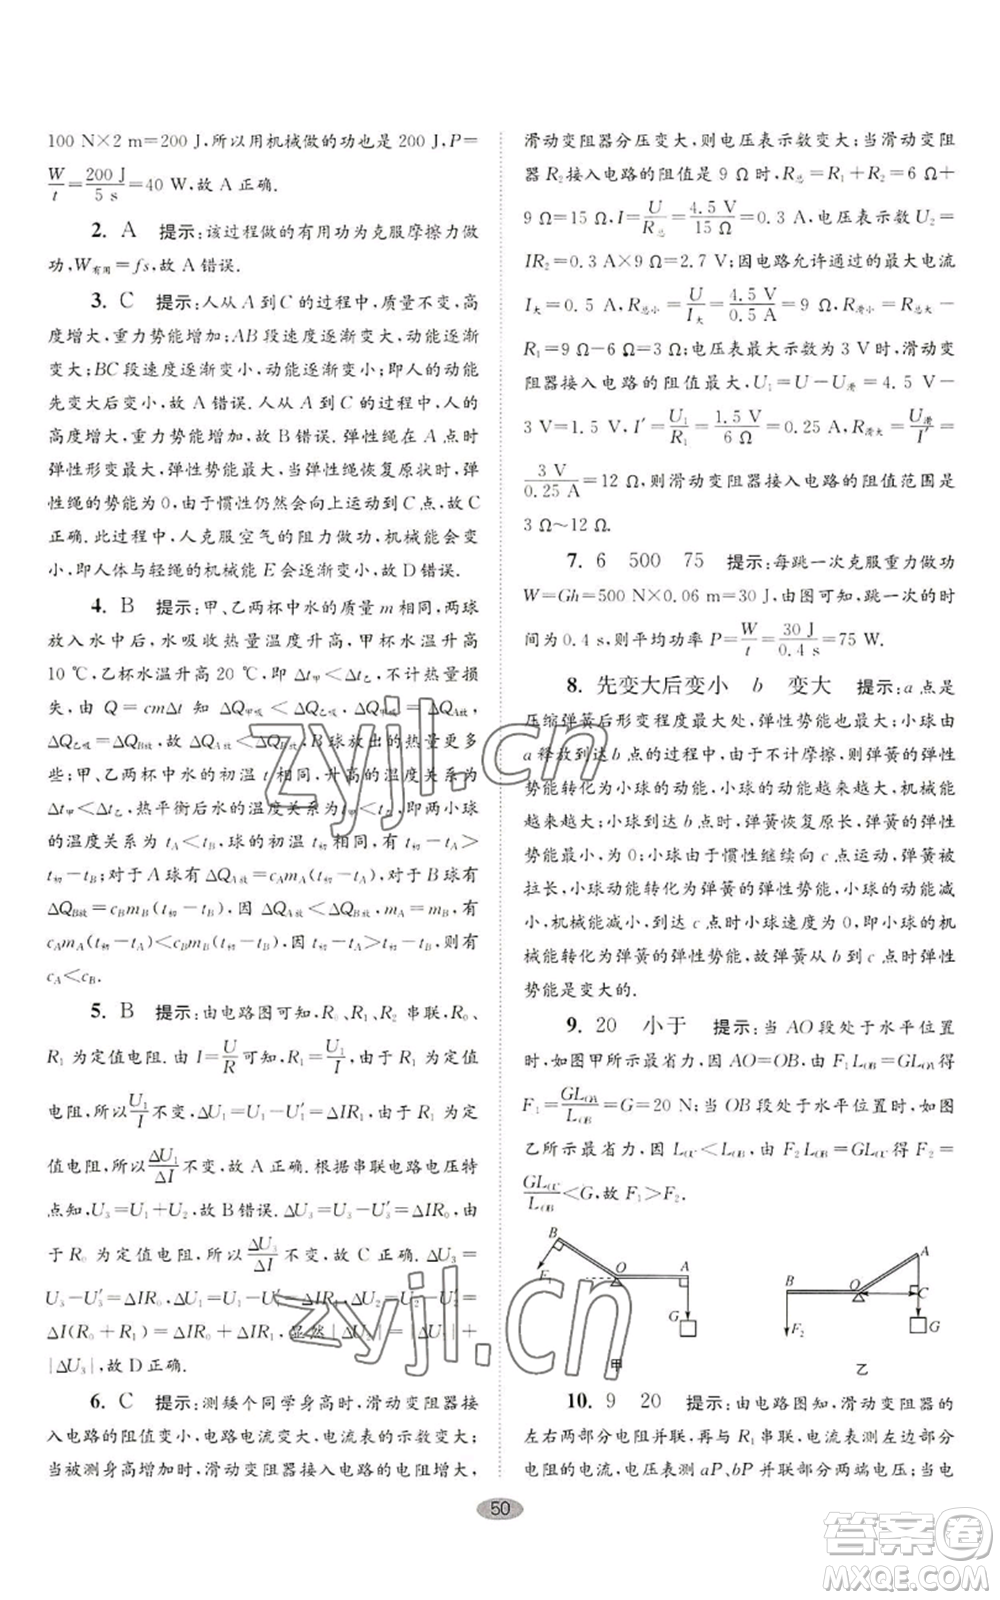 100 N×2 m=200 J,所以用机械做的功也是 200 J,P=
W/t=200 J/5 s=40 W,故 A 正确.
2. A 提示:该过程做的有用功为克服摩擦力做
功,W有用=fs,故 A 错误.
3. C 提示:人从 A 到 C 的过程中,质量不变,高
度增大,重力势能增加;AB 段速度逐渐变大,动能逐渐
变大;BC 段速度逐渐变小,动能逐渐变小;即人的动能
先变大后变小,故 A 错误. 人从 A 到 C 的过程中,人的
高度增大,重力势能增加,故 B 错误. 弹性绳在 A 点时
弹性形变最大,弹性势能最大,当弹性绳恢复原状时,弹
性绳的势能为 0,由于惯性仍然会向上运动到 C 点,故 C
正确. 此过程中,人克服空气的阻力做功,机械能会变
小,即人体与轻绳的机械能 E 会逐渐变小,故 D 错误.
4. B 提示:甲、乙两杯中水的质量 m 相同,两球
放入水中后,水吸收热量温度升高,甲杯水温升高
10 ℃,乙杯水温升高 20 ℃,即 Δt甲<Δt乙,不计热量损
失,由 Q=cmΔt 知 ΔQ甲吸<ΔQ乙吸,ΔQ甲吸=ΔQA放,
ΔQ乙吸=ΔQB放,故 ΔQA放<ΔQB放,B 球放出的热量更多
些;甲、乙两杯中水的初温 t 相同,升高的温度关系为
Δt甲<Δt乙,热平衡后水的温度关系为 t甲<t乙,即两小球
的末温关系为 tA<tB,球的初温 t初相同,有 t初-tA>
t初-tB;对于 A 球有 ΔQA放=cAmA(t初-tA),对于 B 球有
ΔQB放=cBmB(t初-tB),因 ΔQA放<ΔQB放,mA=mB,有
cAmA(t初-tA)<cBmB(t初-tB),因 t初-tA>t初-tB,则有
cA<cB.
5. B 提示:由电路图可知,R0、R1、R2 串联,R0、
R1 为定值电阻. 由 I=U/R 可知,R1=U1/I,由于 R1 为定值
电阻,所以 U1/I 不变,ΔU1=U1-U1′=ΔIR1,由于 R1 为定
值电阻,所以 ΔU1/ΔI 不变,故 A 正确. 根据串联电路电压特
点知,U3=U1+U2,故 B 错误. ΔU3=U3-U3′=ΔIR0,由
于 R0 为定值电阻,所以 ΔU3/ΔI 不变,故 C 正确. ΔU3=
U3-U3′=ΔIR0,ΔU1=ΔIR1,ΔU2=U2-U2′=
ΔI(R0+R1)=ΔIR0+ΔIR1,显然|ΔU2|=|ΔU1|+
|ΔU3|,故 D 正确.
6. C 提示:测矮个同学身高时,滑动变阻器接
入电路的阻值变小,电路电流变大,电流表的示数变大;
当被测身高增加时,滑动变阻器接入电路的电阻增大,
滑动变阻器分压变大,则电压表示数变大;当滑动变阻
器 R2 接入电路的阻值是 9 Ω 时,R总=R1+R2=6 Ω+
9 Ω=15 Ω,I=U/R总=4.5 V/15 Ω=0.3 A,电压表示数 U2=
IR2=0.3 A×9 Ω=2.7 V;因电路允许通过的最大电流
I大=0.5 A,R总小=U/I大=4.5 V/0.5 A=9 Ω,R滑小=R总大-
R1=9 Ω-6 Ω=3 Ω;电压表最大示数为 3 V 时,滑动变
阻器接入电路的阻值最大,U1=U-U滑=4.5 V-
3 V=1.5 V,I′=U1/R1=1.5 V/6 Ω=0.25 A,R滑大=U滑/I′=
3 V/0.25 A=12 Ω,则滑动变阻器接入电路的阻值范围是
3 Ω~12 Ω.
7. 6 500 75 提示:每跳一次克服重力做功
W=Gh=500 N×0.06 m=30 J,由图可知,跳一次的时
间为 0.4 s,则平均功率 P=W/t=30 J/0.4 s=75 W.
8. 先变大后变小 b 变大 提示:a 点是
压缩弹簧后形变程度最大处,弹性势能也最大;小球由
a 释放到达 b 点的过程中,由于不计摩擦,则弹簧的弹性
势能转化为小球的动能,小球的动能越来越大,机械能
越来越大;小球到达 b 点时,弹簧恢复原长,弹簧的弹性
势能最小,为 0;小球由于惯性继续向 c 点运动,弹簧被
拉长,小球动能转化为弹簧的弹性势能,小球的动能减
小,机械能减小,到达 c 点时小球速度为 0,即小球的动
能全部转化为弹簧的弹性势能,故弹簧从 b 到 c 点弹性
势能是变大的.
9. 20 小于 提示:当 AO 段处于水平位置
时,如图甲所示最省力,因 AO=OB,由 F1LOB=GLOA得
F1=GLOA/LOB=G=20 N;当 OB 段处于水平位置时,如图
乙所示最省力,因 LOC<LOB,由 F2LOB=GLOC得 F2=
GLOC/LOB<G,故 F1>F2.
B O A F1 G 甲
B O A C F2 G 乙
10. 9 20 提示:由电路图知,滑动变阻器的
左右两部分电阻并联,再与 R1 串联,电流表测通过 R1
电阻的电流,电压表测 aP、bP 并联部分两端电压;当电
50
zyjl.cn
zyjl.cn
答案圈
MXQE.COM